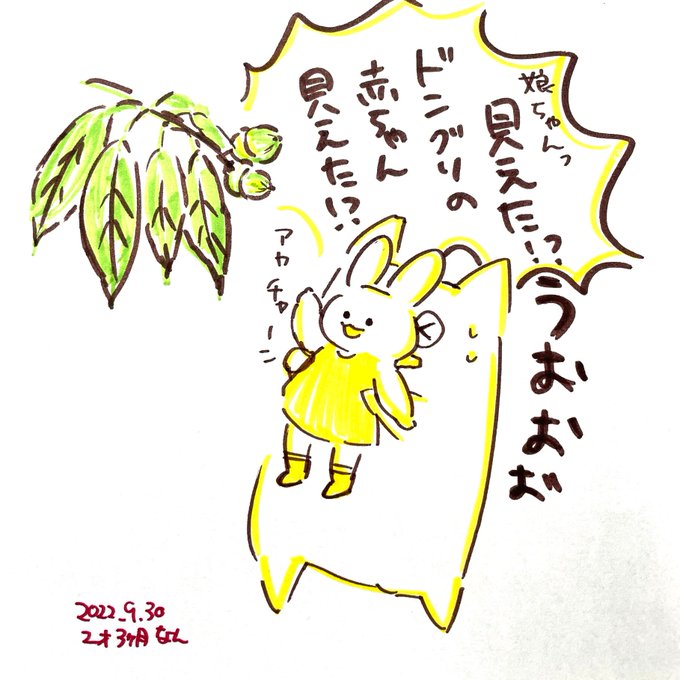 娘ちゃんっ
見えた!?
ドングリの
赤ちゃん
見えた!?
うおおお
アカチャーン
2022.9.30
2才3ヶ月